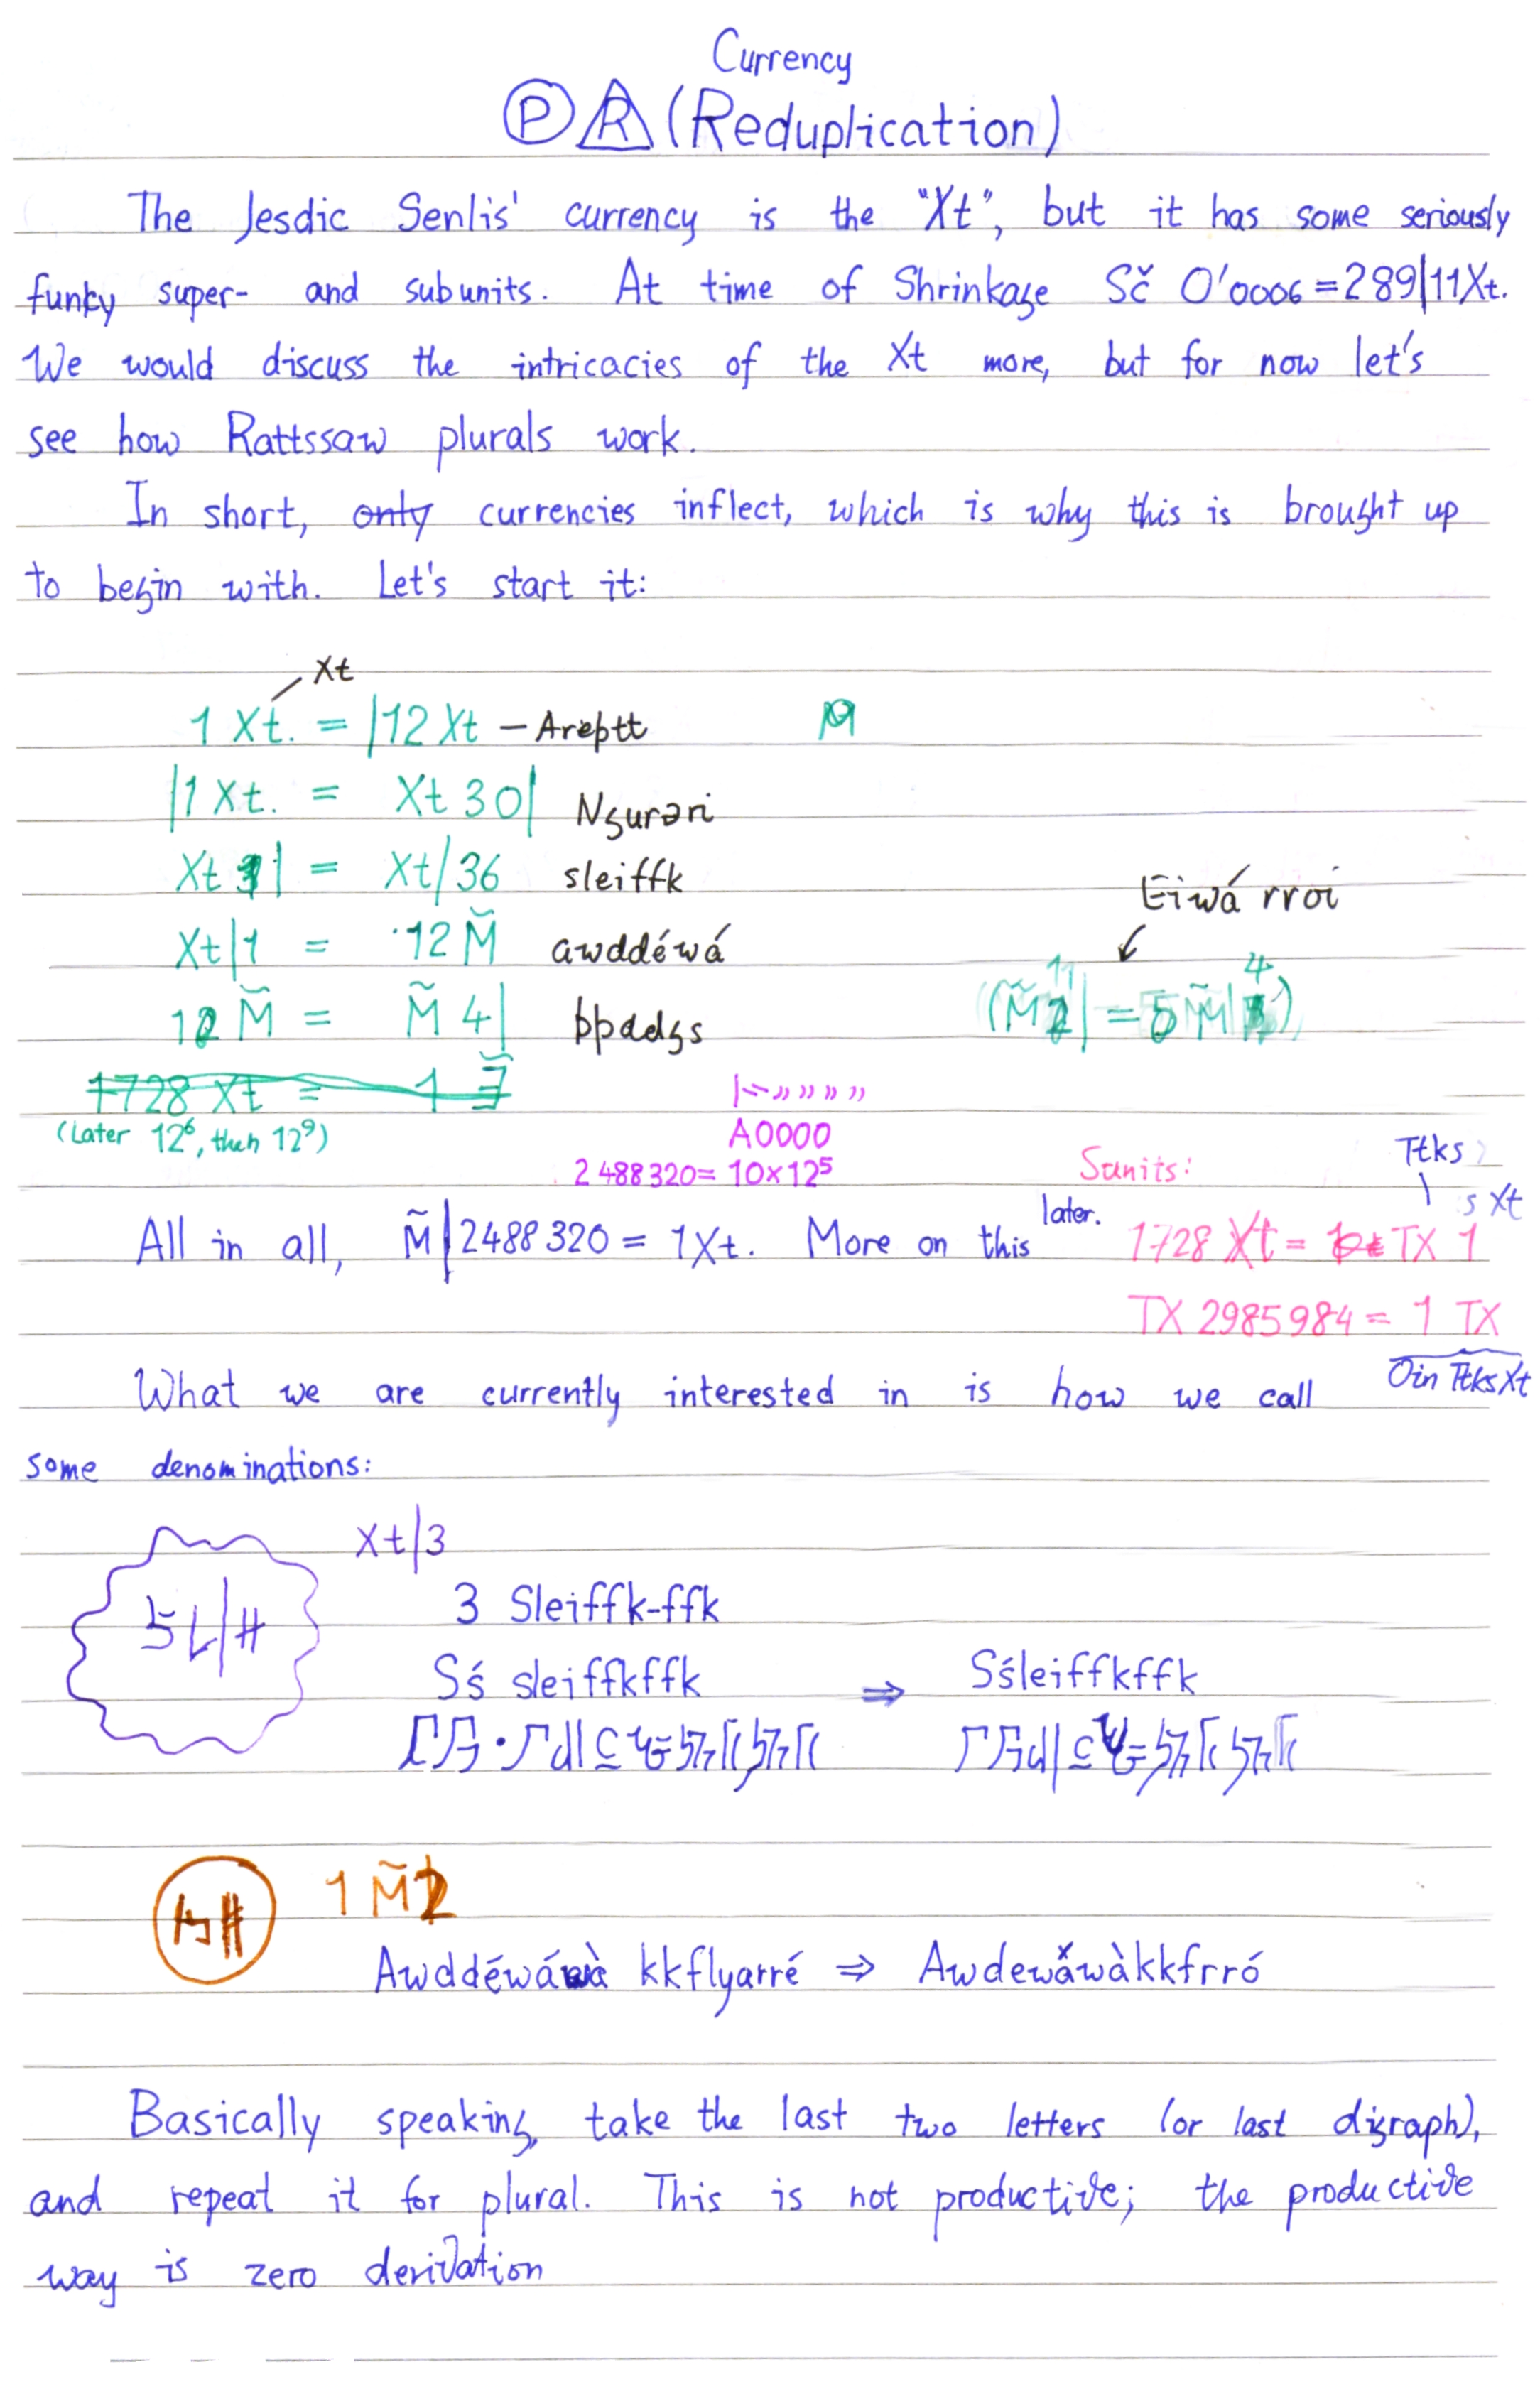 Currency
Ⓟ R (Reduplication)
The Jesdic Senlis' currency is the "Xt", but it has some seriously
funky super- and subunits. At time of Shrinkage Sč 0'0006=289|11Xt.
We would discuss the intricacies of the Xt more, but for now let's
see how Rattssaw plurals work.
In short, only currencies inflect, which is why this is brought up
to begin with. Let's start it:
Xt
1 Xt. = |12 Xt – Areþtt
|1 Xt. = Xt 30| Ngurəri
Xt 1| = Xt/36 sleiffk
Eiwá rroi
Xt|1 = 12 M̃ awddéwá
12 M̃ = M̃ 4| þþadgs
1728 Xt = 1
(Later 12⁶, then 12⁹)
A0000
2488320= 10×12⁵
Sunits:
Ttks
s Xt
All in all, M̃|2488320 = 1Xt. More on this later.
1728 Xt = TX 1
TX 2985984 = 1 TX
Oin TtksXt
What we are currently interested in is how we call
some denominations:
Xt/3
3 Sleiffk-ffk
Sś sleiffkffk ⇒ Sśleiffkffk
1 M̃
Awddéwáwà kkflyarré ⇒ Awdewa̽wàkkfrró
Basically speaking, take the last two letters (or last digraph),
and repeat it for plural. This is not productive; the productive
way is zero derivation